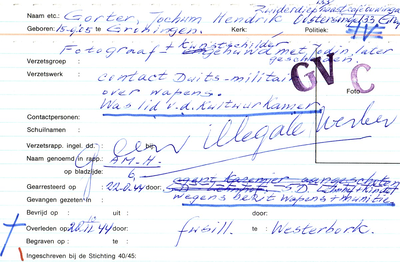 Zuiderdiep
Naam etc.: Gorter, Jochum Hendrik Oosterwegel 33 Gron
Geboren: 15-9-05 te Groningen. Kerk: Politiek:
Fotograaf + Kunstschilder
gehuwd met Jodin, later
Verzetsgroep : gescheiden.
Verzetswerk : contact Duits-militair
over wapens.
Was lid v.d. Kultuurkamer
GV C
Foto
Contactpersonen:
Schuilnamen : Geen illegale werker
Verzetsrapp. ingel. dd.: bij
Naam genoemd in rapp.: AM-H.
op bladzijde: 6
Gearresteerd op : 22-9-44 door:
Gevangen gezeten in wegens bezit wapens + munitie
Bevrijd op : uit : door:
Overleden op: 20.10.44 door: fusill. te Westerbork.
Begraven op : te :
Ingeschreven bij de Stichting 40/45: